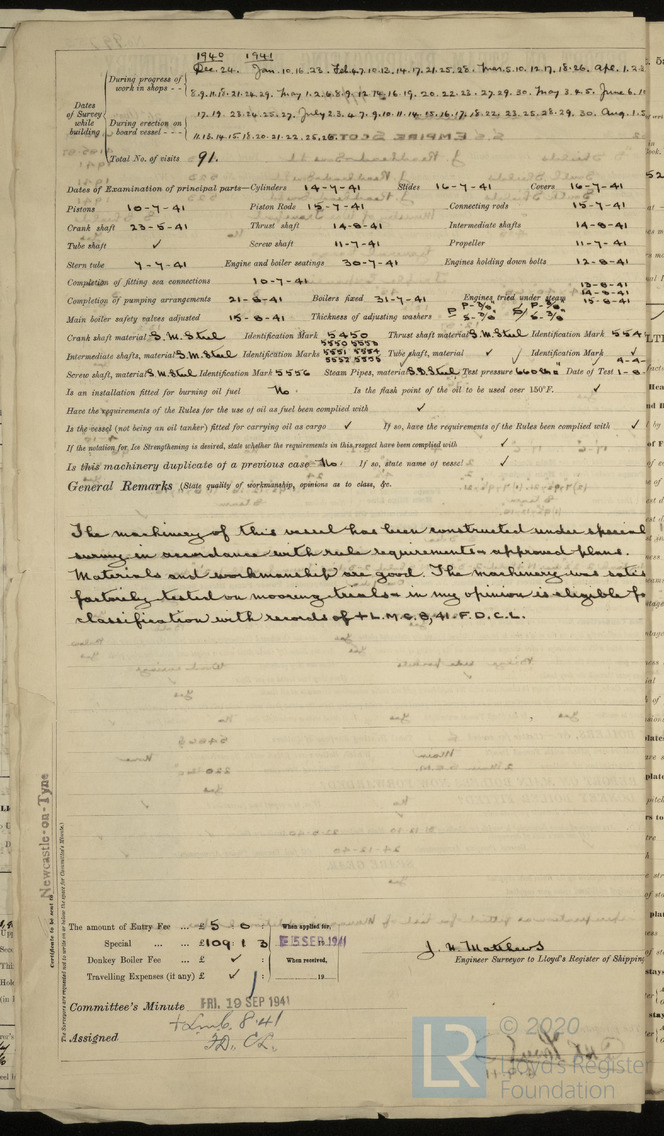 1940 1941
Dates of Survey while building
During progress of work in shops - - Dec. 24. Jan. 10. 16. 23. Feb. 4. 7. 10. 13. 14. 17. 21. 25. 28. Mar. 5. 10. 12. 17. 18. 26. Apr. 1. 2. 3
8. 9. 11. 18. 21. 24. 29. May 1. 2. 6. 8. 9. 12. 14. 16. 19. 20. 22. 23. 27. 29. 30. May 3. 4. 5. June 6. 10
During erection on board vessel - - - 17. 19. 23. 24. 25. 27. July 2. 3. 4. 7. 9. 10. 11. 14. 15. 16. 17. 18. 22. 23. 25. 28. 29. 30. Aug. 1. 5
11. 12. 14. 15. 18. 20. 21. 22. 25. 28.
Total No. of visits 91.
Dates of Examination of principal parts—Cylinders 14-7-41 Slides 16-7-41 Covers 16-7-41
Pistons 10-7-41 Piston Rods 15-7-41 Connecting rods 15-7-41
Crank shaft 23-5-41 Thrust shaft 14-8-41 Intermediate shafts 14-8-41
Tube shaft ✓ Screw shaft 11-7-41 Propeller 11-7-41
Stern tube 7-7-41 Engine and boiler seatings 30-7-41 Engines holding down bolts 12-8-41
Completion of fitting sea connections 10-7-41
Completion of pumping arrangements 21-8-41 Boilers fixed 31-7-41 Engines tried under steam 13-8-41 14-8-41 15-8-41
Main boiler safety valves adjusted 15-8-41 Thickness of adjusting washers P P-3/8" S-7/16" S P-3/8" S-3/8"
Crank shaft material S.M. Steel Identification Mark 5450 Thrust shaft material S.M. Steel Identification Mark 554
Intermediate shafts, material S.M. Steel Identification Marks 5550 5553 5551 5554 5552 5555 Tube shaft, material ✓ Identification Mark ✓
Screw shaft, material S.M. Steel Identification Mark 5556 Steam Pipes, material S.D. Steel Test pressure 660 Date of Test
Is an installation fitted for burning oil fuel No. Is the flash point of the oil to be used over 150°F. ✓
Have the requirements of the Rules for the use of oil as fuel been complied with ✓
Is the vessel (not being an oil tanker) fitted for carrying oil as cargo ✓ If so, have the requirements of the Rules been complied with ✓
If the notation for Ice Strengthening is desired, state whether the requirements in this respect have been complied with ✓
Is this machinery duplicate of a previous case No. If so, state name of vessel ✓
General Remarks (State quality of workmanship, opinions as to class, &c.
The machinery of this vessel has been constructed under special
survey in accordance with rule requirements & approved plans.
Materials and workmanship are good. The machinery was satis
factorily tested on mooring trials & in my opinion is eligible fo
classification with records of + L.M.C. 8,41. F.D. C.L.
Newcastle-on-Tyne
Certificate to be sent to
(The Surveyors are requested not to write on or below the space for Committee's Minute.)
The amount of Entry Fee ... £ 5 : 0 : When applied for,
Special ... ... £ 109 : 1 : 3 5 SEP 1941
Donkey Boiler Fee ... £ ✓ : When received,
Travelling Expenses (if any) £ ✓ : 19
J. H. Matthews
Engineer Surveyor to Lloyd's Register of Shipping
Committee's Minute FRI. 19 SEP 1941
Assigned + Lmc 8.41
FD. CL.
© 2020
Lloyd's Register
Foundation
LR